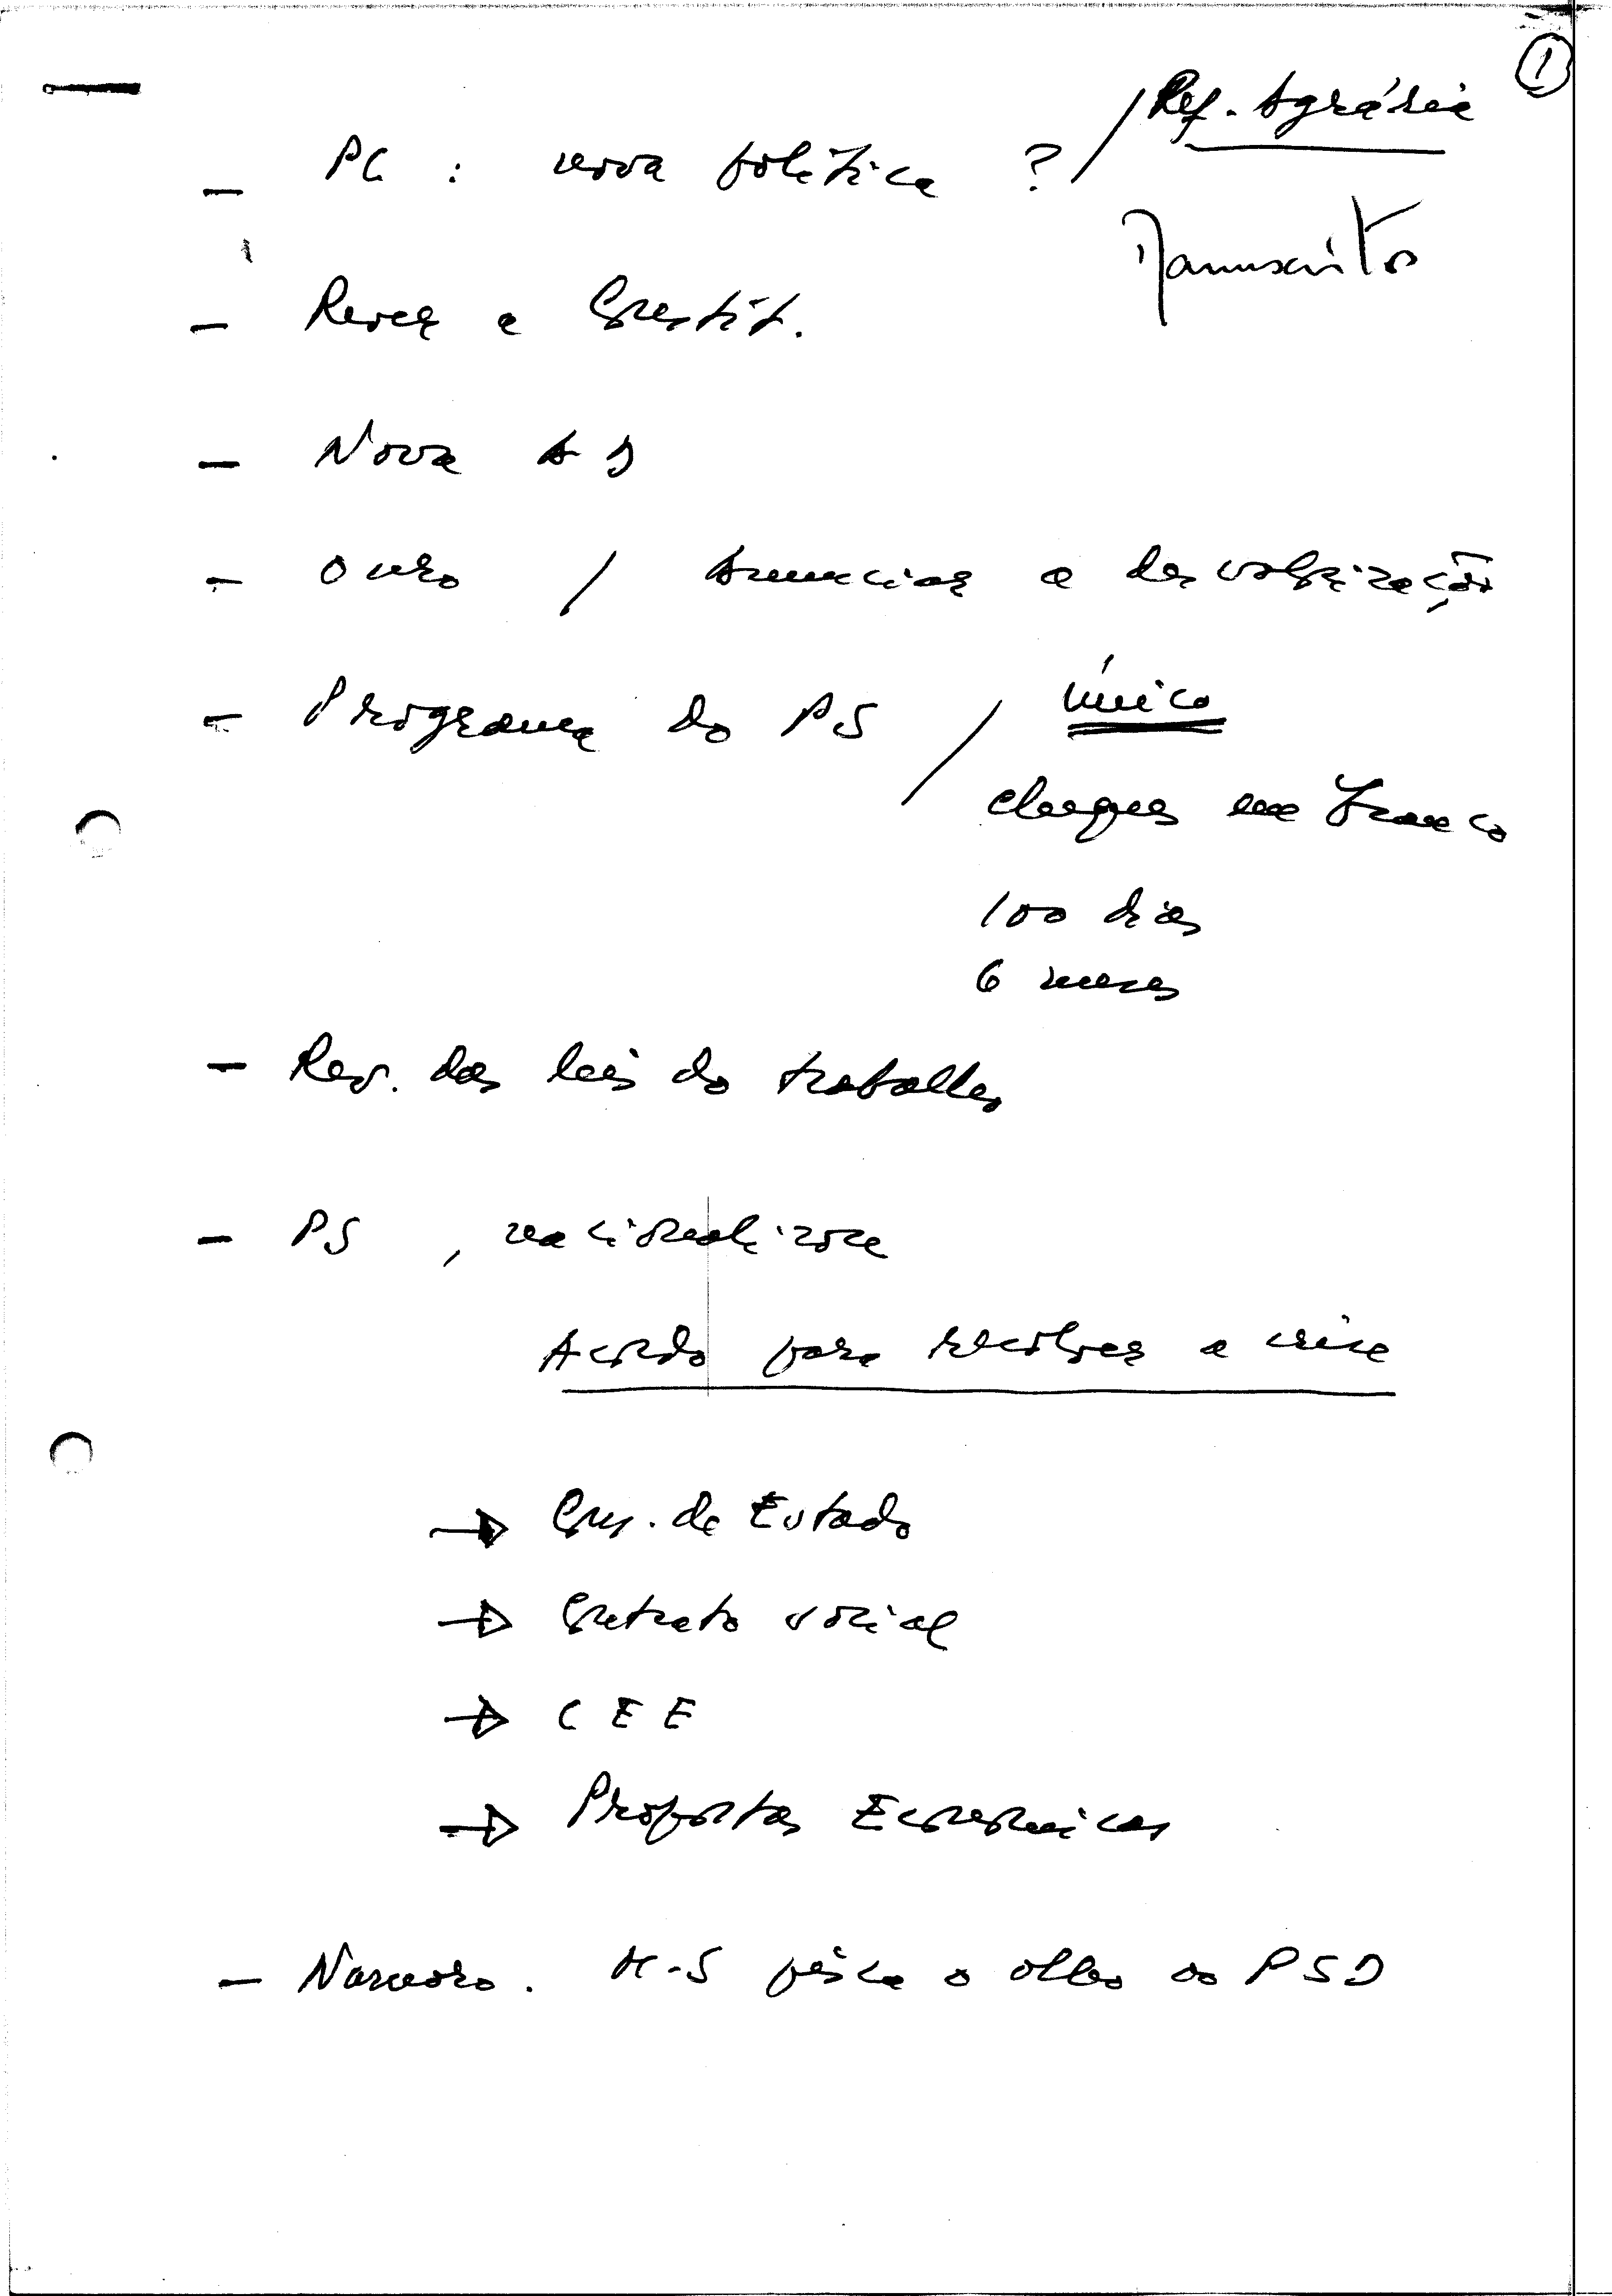 ①
– PC : nova política ? / Ref. Agrária
Manuscrito
– Rever a Constit.
– Nova AD
– Ouro / Anunciar a desvalorização
– Programa do PS / único
cheques em branco
100 dias
6 meses
– Rev. das leis do trabalho
– PS , nacionalizou
Acordo para resolver a crise
→ Cons. de Estado
→ Contrato social
→ CEE
→ Propostas Económicas
– Namoro. M-S pisca o olho ao PSD